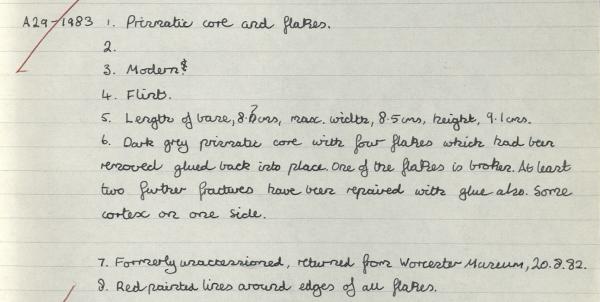 A29-1983 1. Prismatic core and flakes.
2.
3. Modern?
4. Flint.
5. Length of base, 8. cms, max. width, 8.5 cms, height, 9.1 cms.
6. Dark grey prismatic core with four flakes which had been
removed glued back into place. One of the flakes is broken. At least
two further fractures have been repaired with glue also. Some
cortex on one side.
7. Formerly unaccessioned, returned from Worcester Museum, 20.8.82.
8. Red painted lines around edges of all flakes.